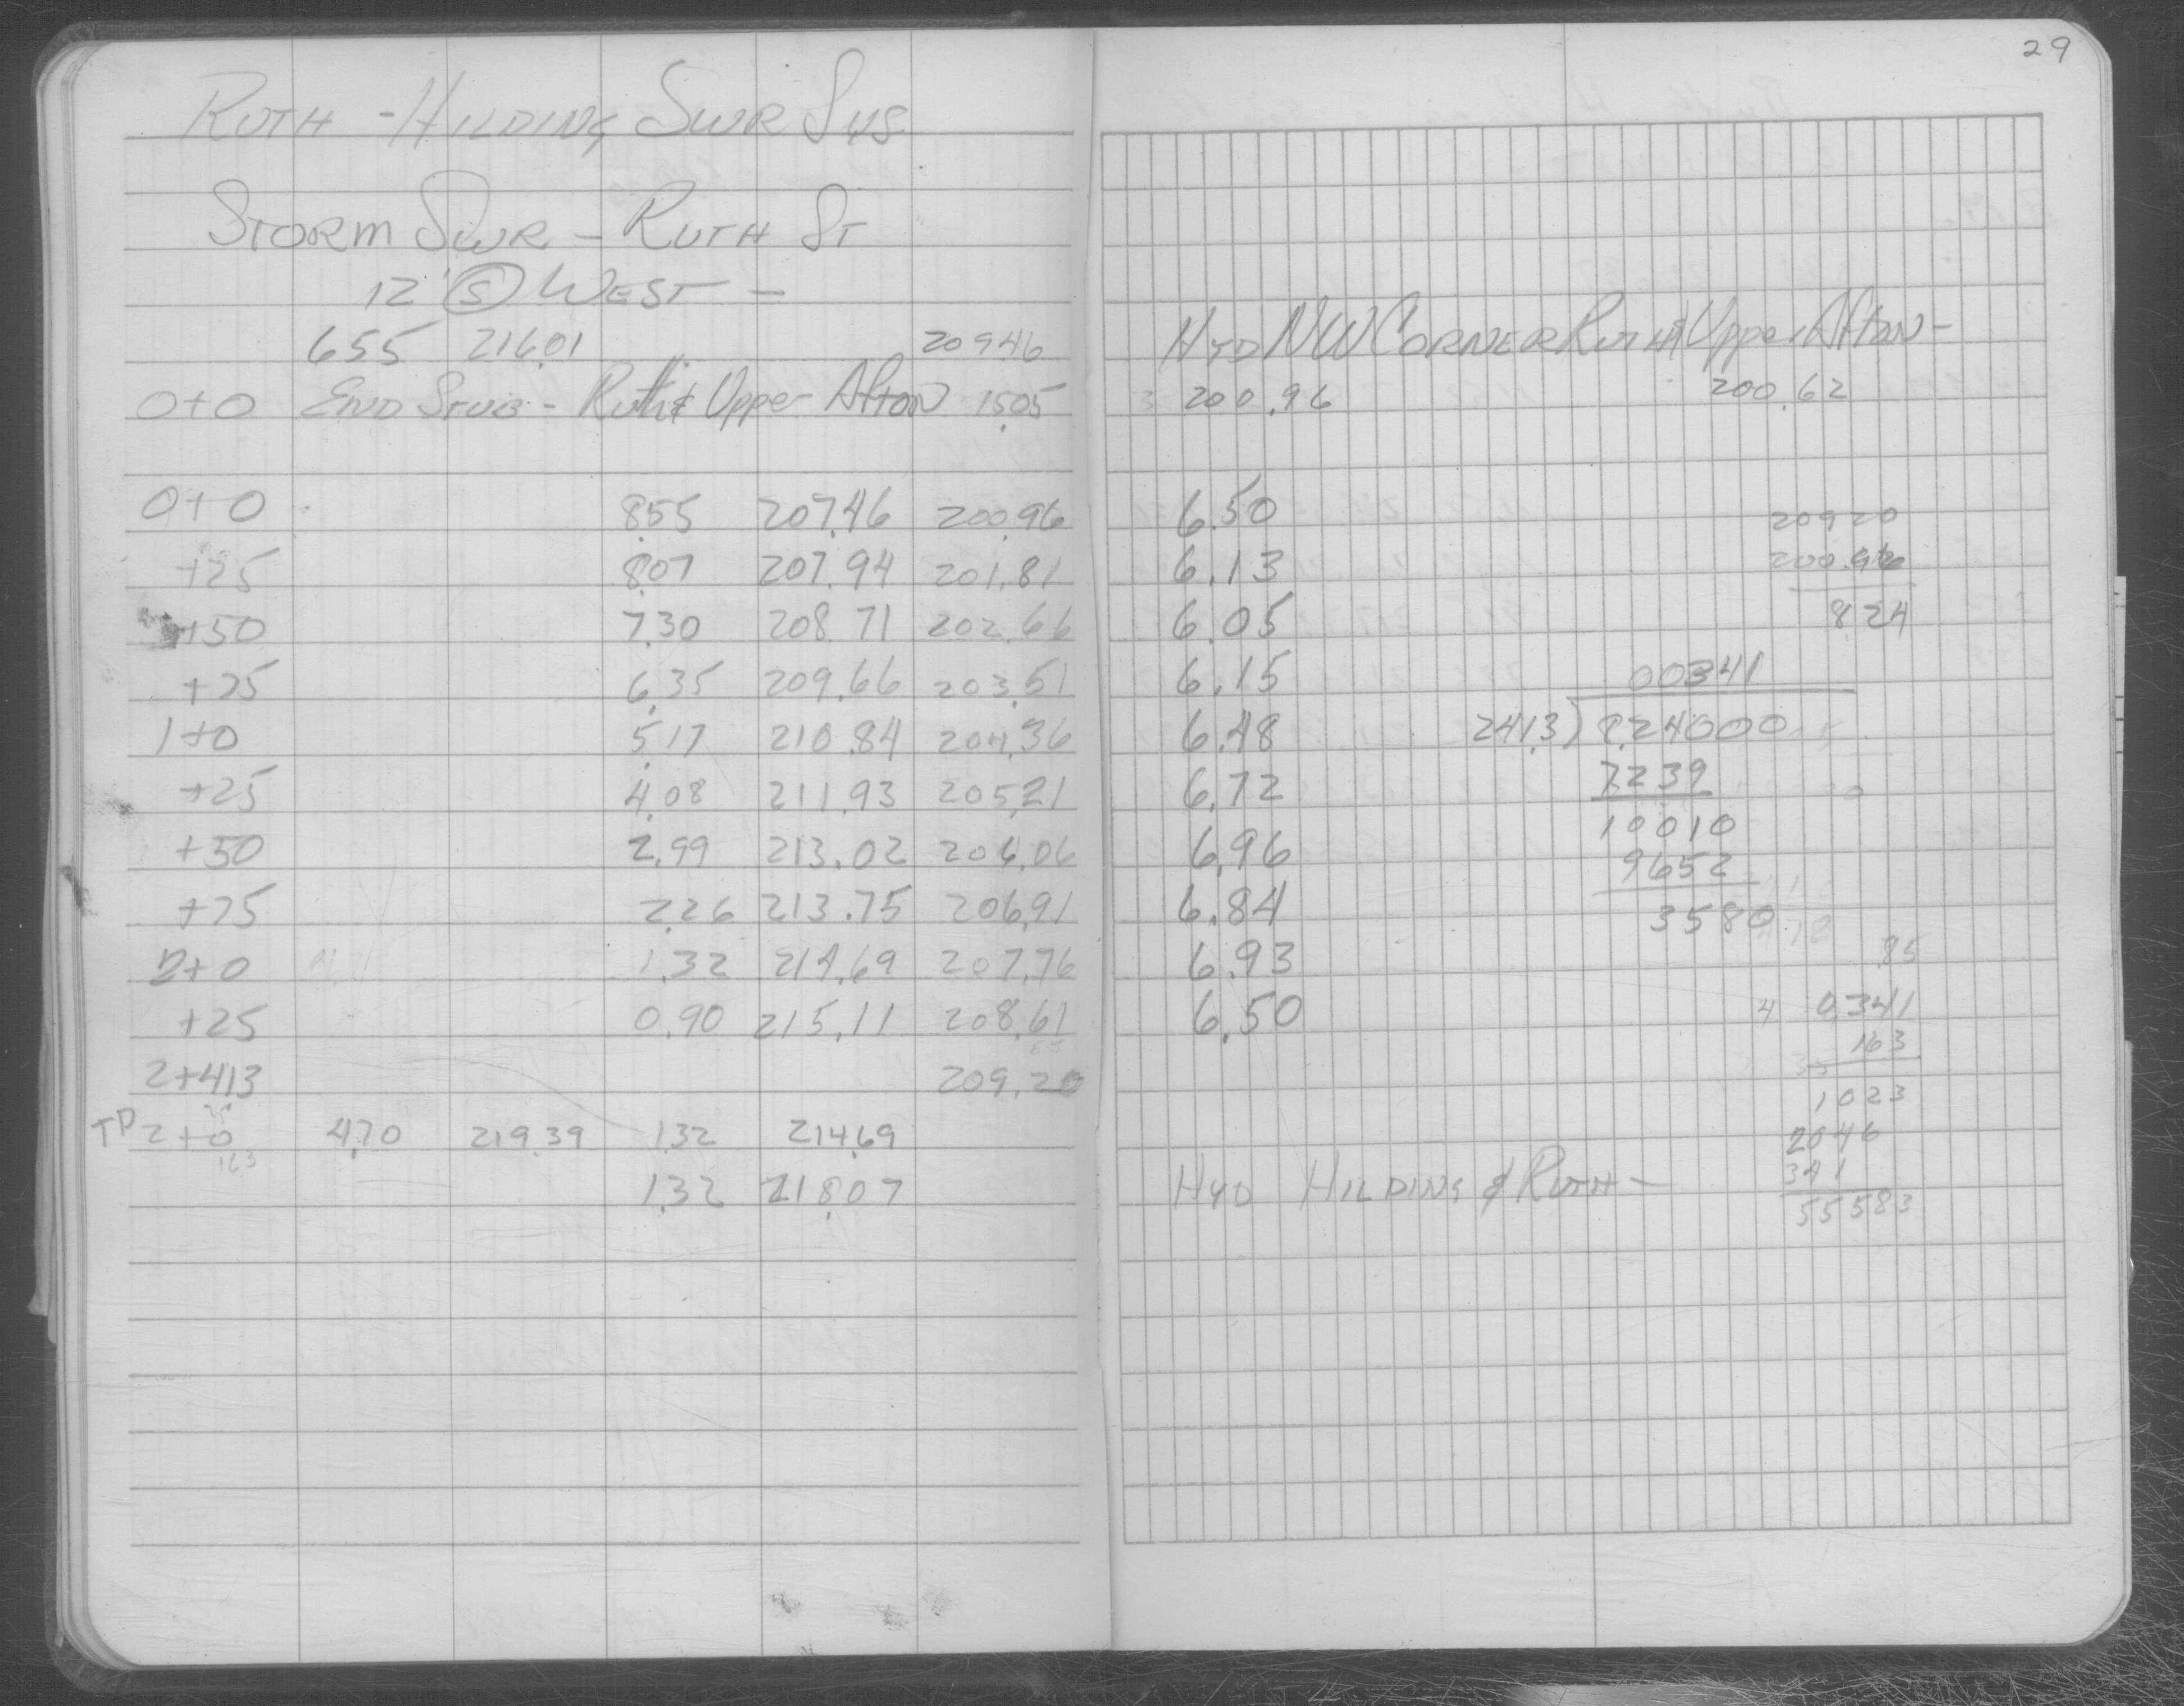 29
RUTH - HILDING SWR SYS
STORM SWR - RUTH ST
12' (S) WEST -
6.55 216.01 209.46 HYD NW CORNER RUTH & Upper Afton -
0+0 END STUB - Ruth & Upper Afton 15.05 200.96 200.62
0+0 8.55 207.46 200.96 6.50
+25 8.07 207.94 201.81 6.13
+50 7.30 208.71 202.66 6.05
+25 6.35 209.66 203.51 6.15
1+0 5.17 210.84 204.36 6.48
+25 4.08 211.93 205.21 6.72
+50 2.99 213.02 206.06 6.96
+75 2.26 213.75 206.91 6.84
2+0 1.32 214.69 207.76 6.93
+25 0.90 215.11 208.61 6.50
2+413 209.20
TP 2+0 4.70 219.39 1.32 214.69
163
1.32 218.07 HYD HILDING & RUTH -
209 20
200.96
8 24
00341
241.3) 8.24000
7.239
10010
9652
3580
.85
4 0.341
163
1023
2046
341
55583